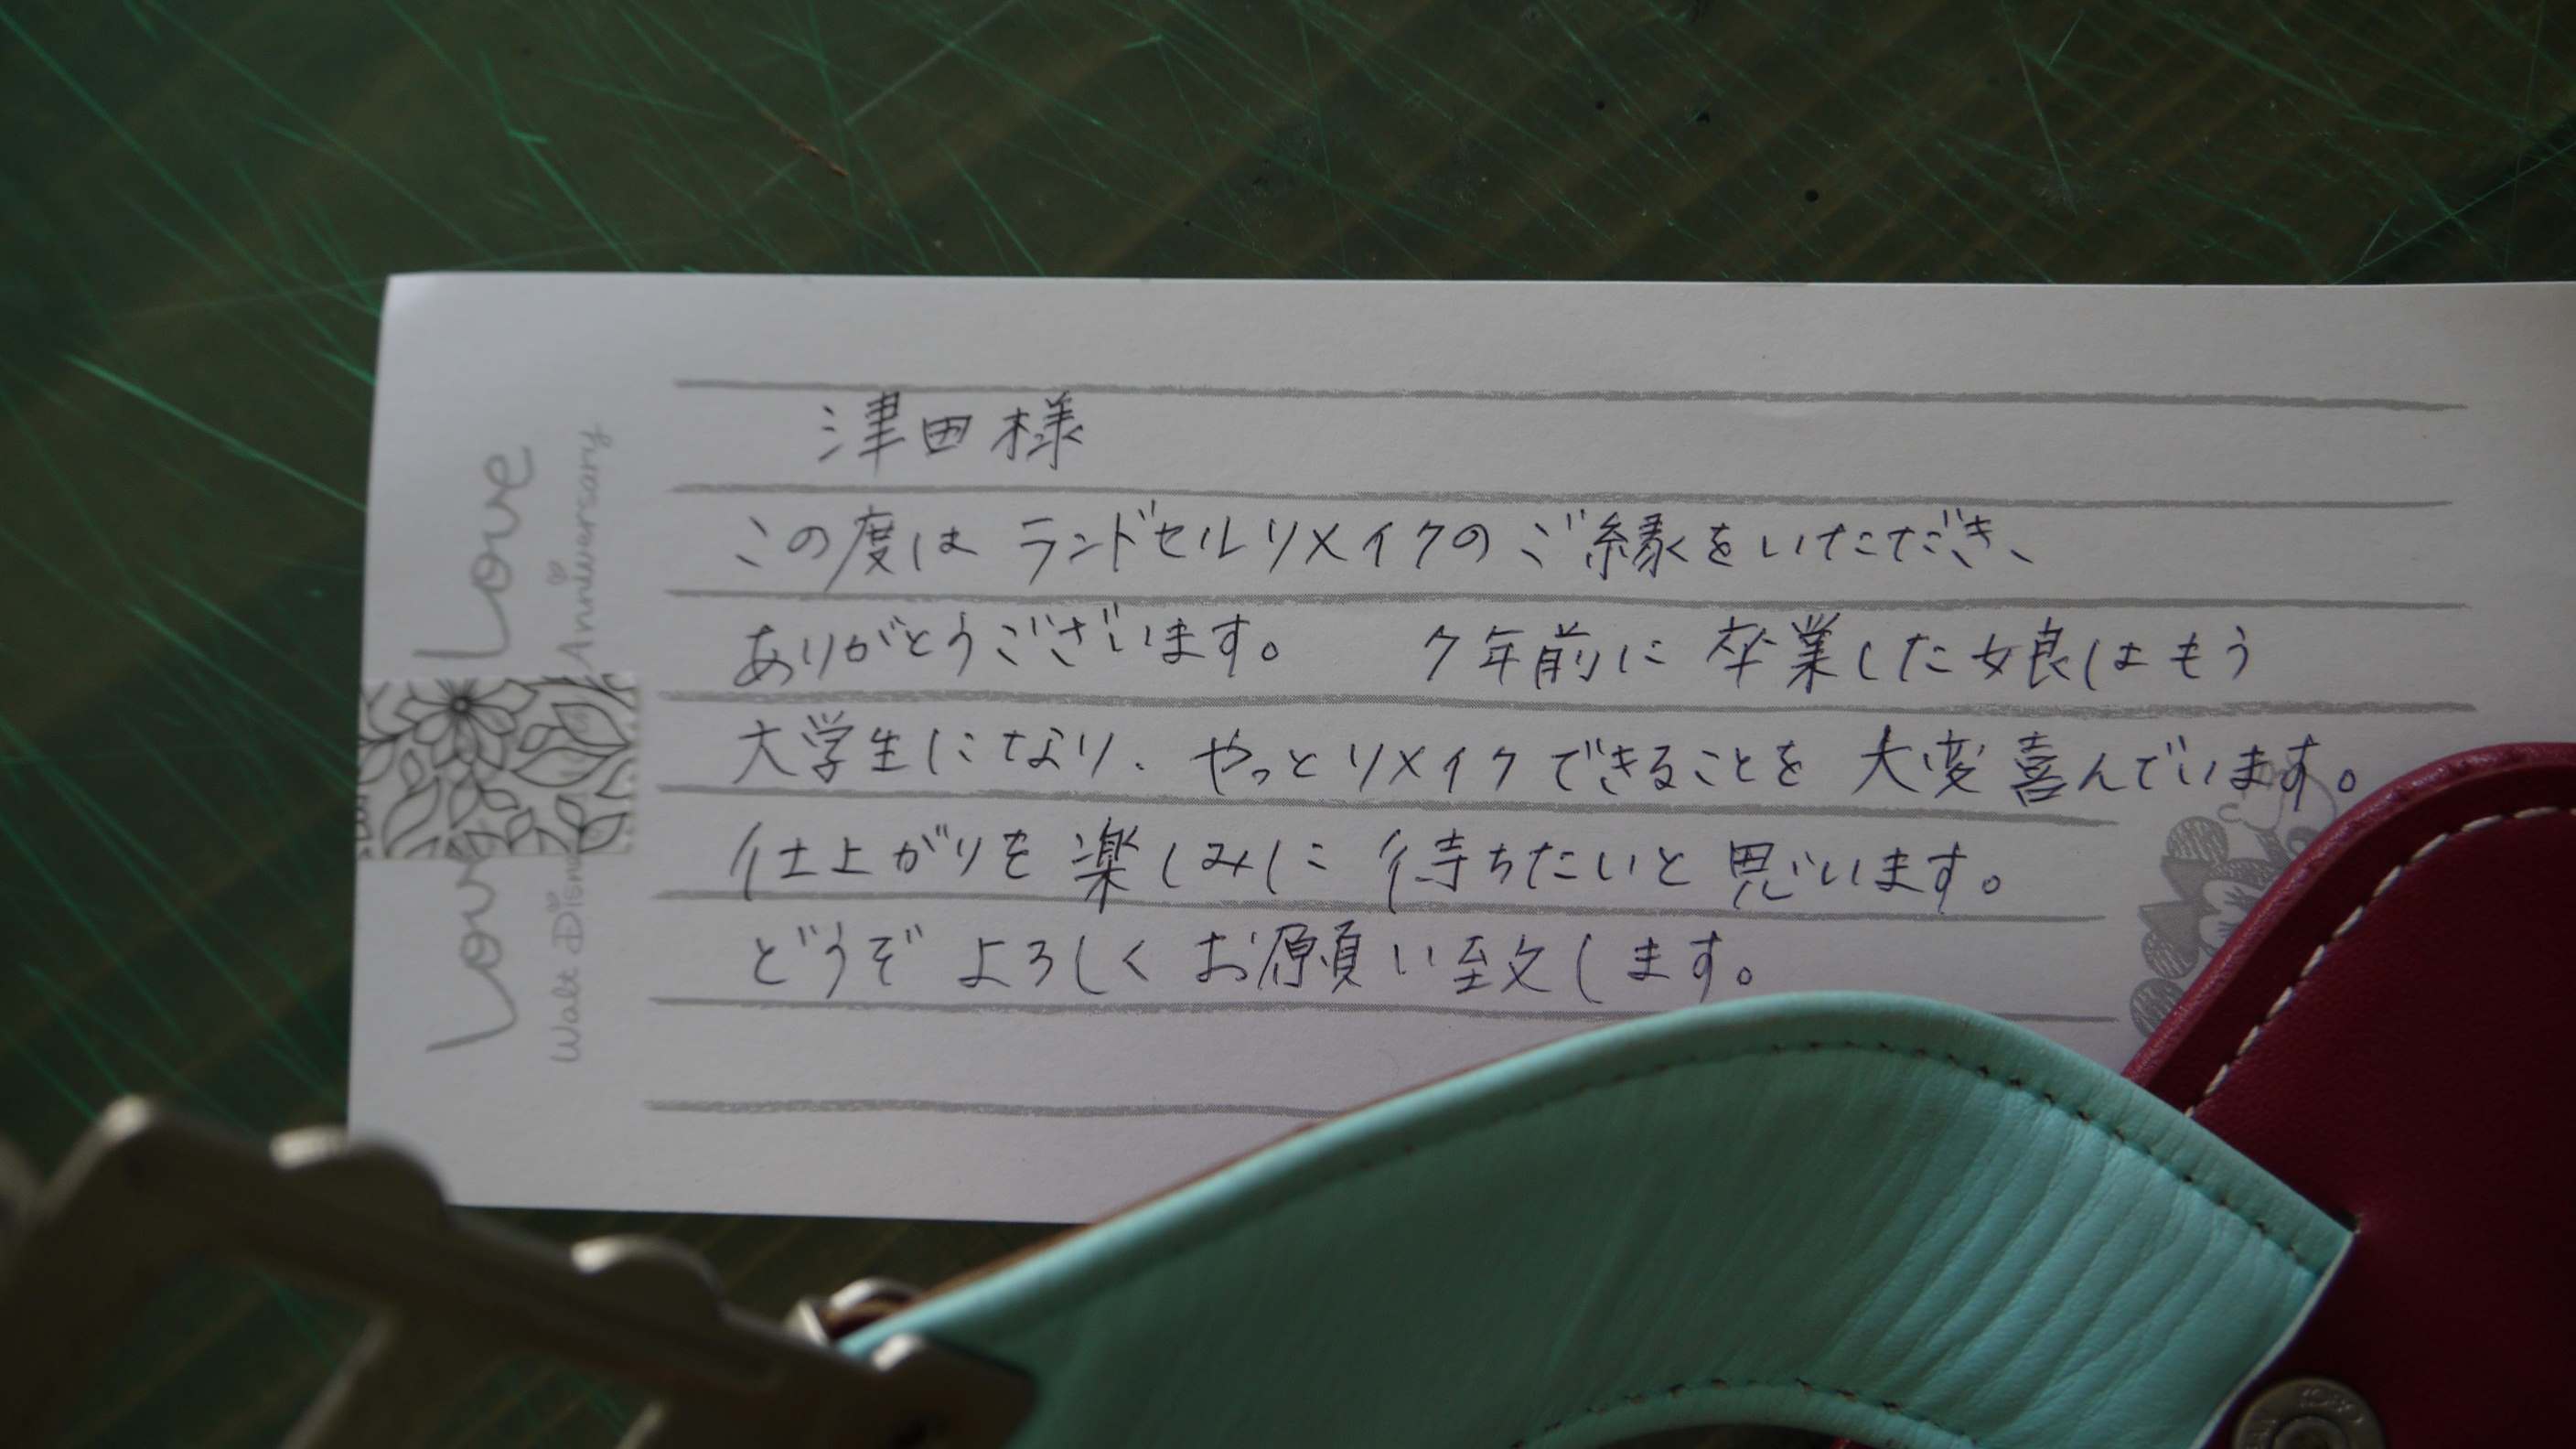 津田様
この度は ランドセルリメイクの ご縁をいただき、
ありがとうございます。 7年前に 卒業した娘はもう
大学生になり、やっとリメイクできることを 大変喜んでいます。
仕上がりを 楽しみに 待ちたいと 思います。
どうぞ よろしく お願い致します。
Love
Anniversary
Love
Walt Disn